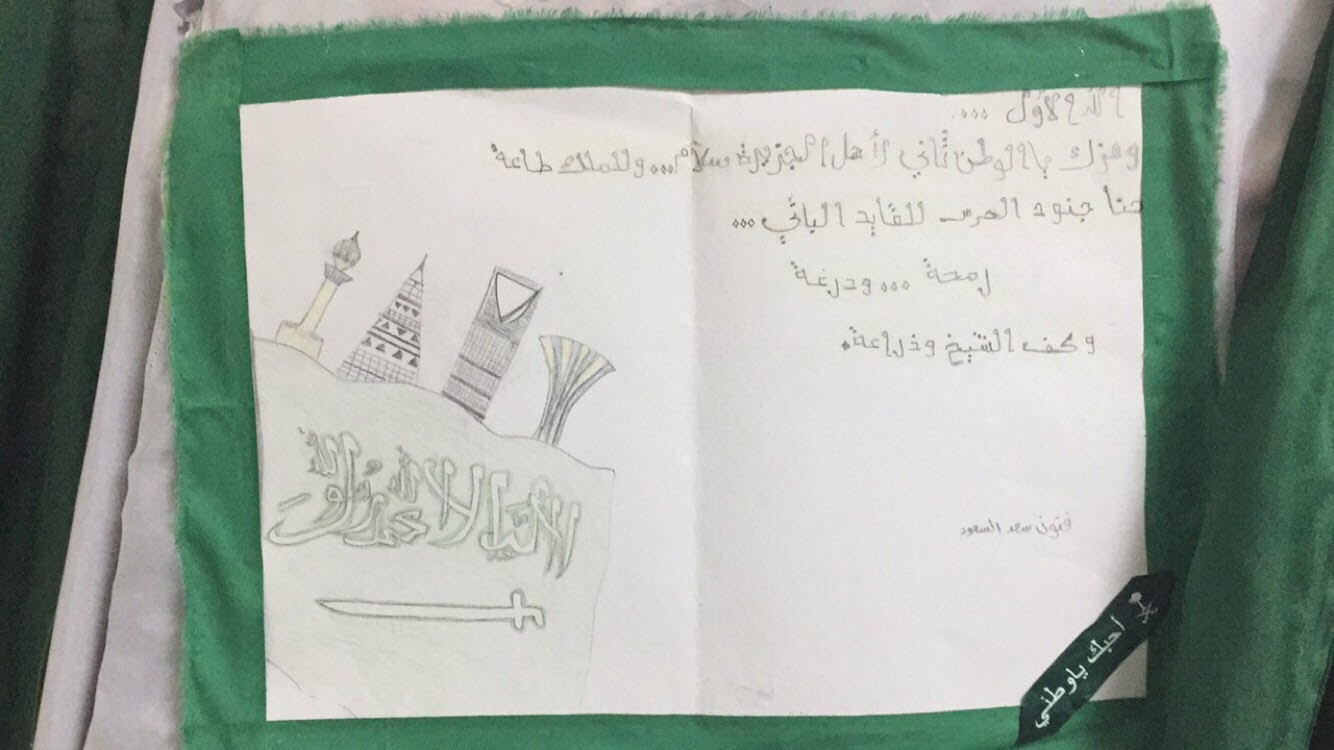 وعزك يا الوطن ثاني لأهل الجزيرة سلام... وللملك طاعة
حنا جنود الحرس للقايد الباني...
رمحة ... ودرعة
وكف الشيخ وذراعة.
لا إله إلا الله محمد رسول الله
فتون سعد السعود
أحبك ياوطني